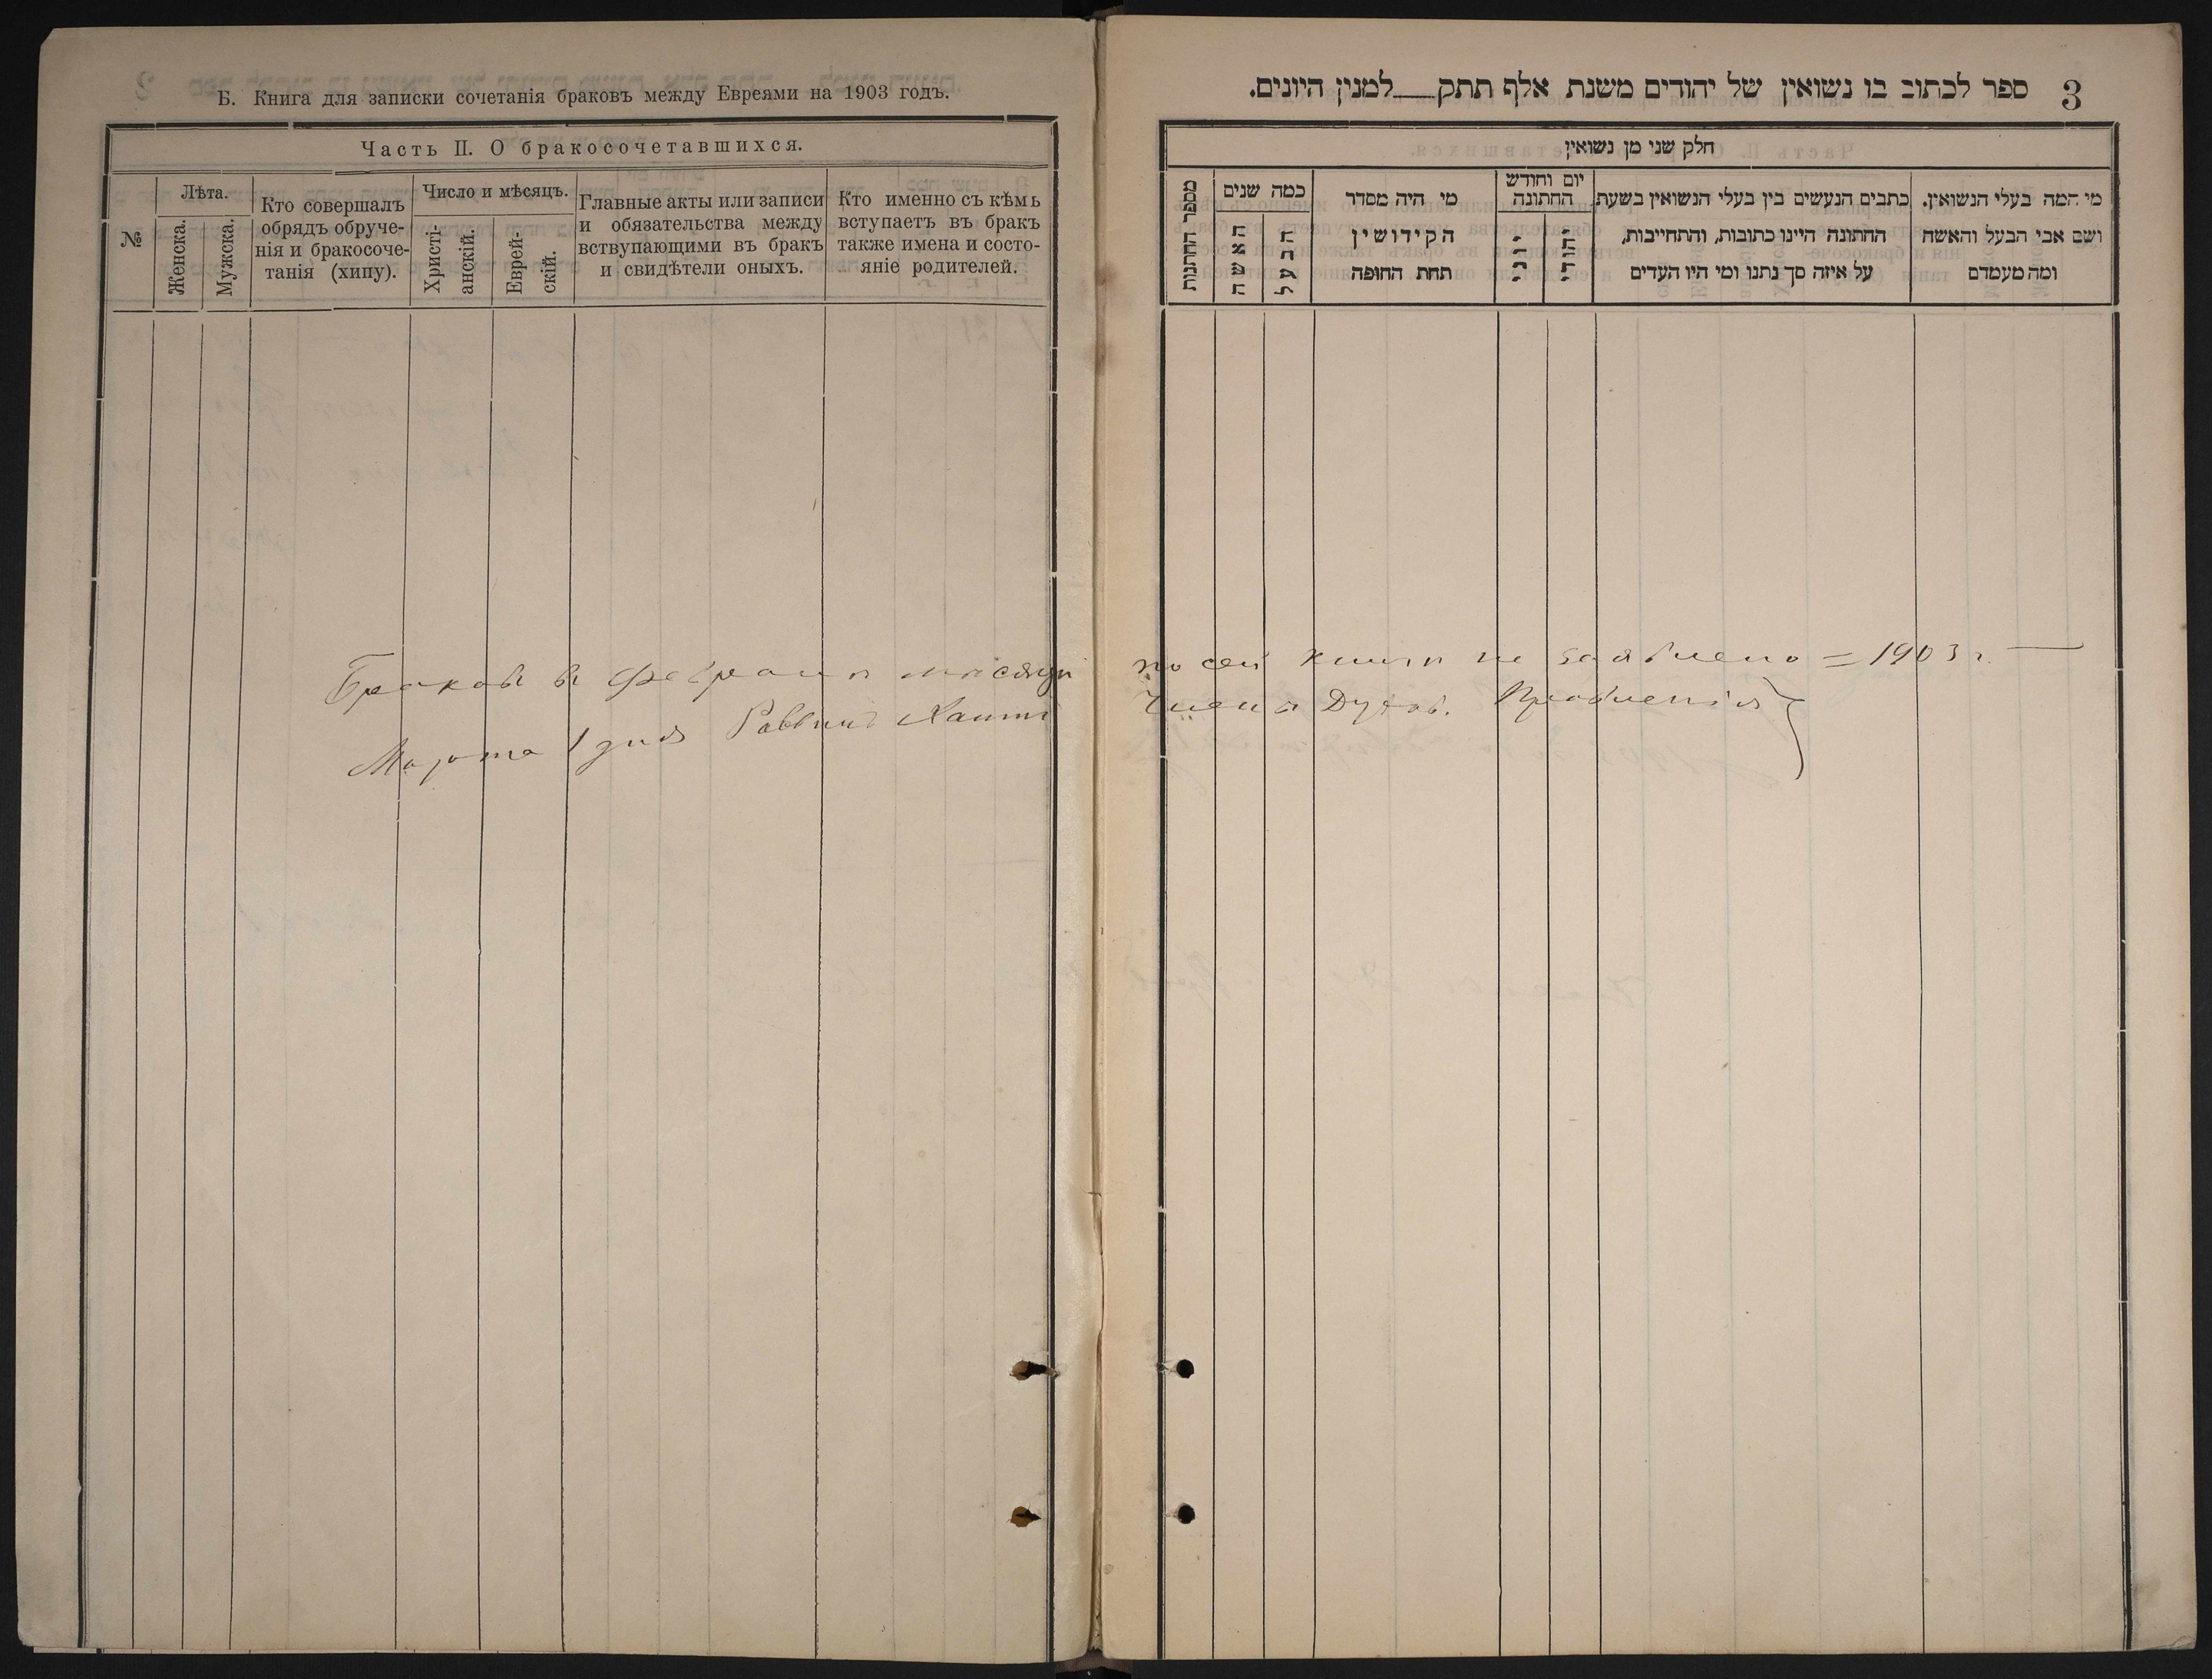 Б. Книга для записки сочетанія браковъ между Евреями на 1903 годъ.
Часть II. О бракосочетавшихся.
№
Лѣта.
Женска.
Мужска.
Кто совершалъ
обрядъ обруче-
нія и бракосоче-
танія (хипу).
Число и мѣсяцъ.
Христі-
анскій.
Еврей-
скій.
Главные акты или записи
и обязательства между
вствупающими въ бракъ
и свидѣтели оныхъ.
Кто именно съ кѣмъ
вступаетъ въ бракъ
также имена и состо-
яніе родителей.
Браковъ въ Февралѣ мѣсяцѣ
Марта 1 дня Раввинъ
3
ספר לכתוב בו נשואין של יהודים משנת אלף תתק — למנין היונים.
חלק שני מן נשואין
מספר החתונות
כמה שנים
האשה
הבעל
מי היה מסדר
הקידושין
תחת החופה
יום וחודש
החתונה
יוני
יהודי
כתבים הנעשים בין בעלי הנשואין בשעת
החתונה היינו כתובות, והתחייבות,
על איזה סך נתנו ומי היו העדים
מי המה בעלי הנשואין.
ושם אבי הבעל והאשה
ומה מעמדם
по сей книги не заявлено = 1903 г. —
Члены Духов. Правленія